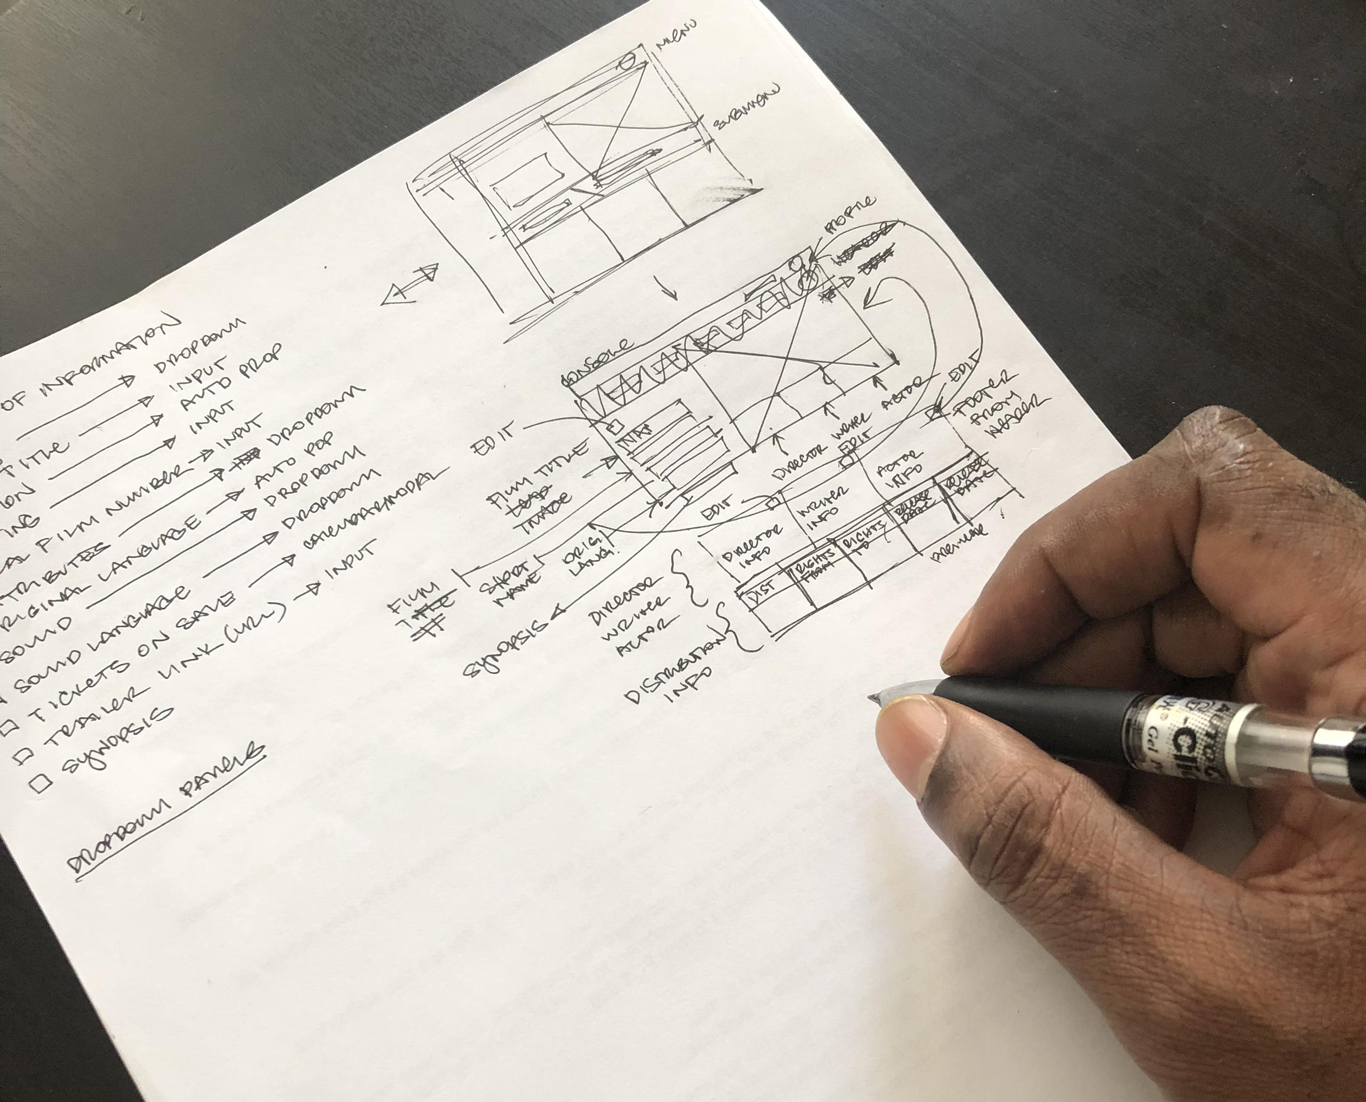 OF INFORMATION
→ DROPDOWN
TITLE → INPUT
ION → AUTO PROP
ING → INPUT
AL FILM NUMBER → INPUT
TRIBUTES → DROPDOWN
RIGINAL LANGUAGE → AUTO POP
SOUND → DROPDOWN
SOUND LANGUAGE → DROPDOWN
TICKETS ON SALE → CALENDAR MODAL
TRAILER LINK (URL) → INPUT
SYNOPSIS
DROPDOWN PANELS
MENU
SUBMENU
PROFILE
CONSOLE
EDIT
FILM TITLE
LEAD
IMAGE
NAV
DIRECTOR
WRITER
ACTOR
EDIT
EDIT
FOOTER
FROM
HEADER
EDIT
FILM
TITLE
SHORT
NAME
ORIG.
LANG.
SYNOPSIS
DIRECTOR
WRITER
ACTOR
DISTRIBUTION
INFO
DIRECTOR
INFO
WRITER
INFO
ACTOR
INFO
DIST
RIGHTS
FROM
RIGHTS
RELEASE
DATE
PREMIERE
Gel